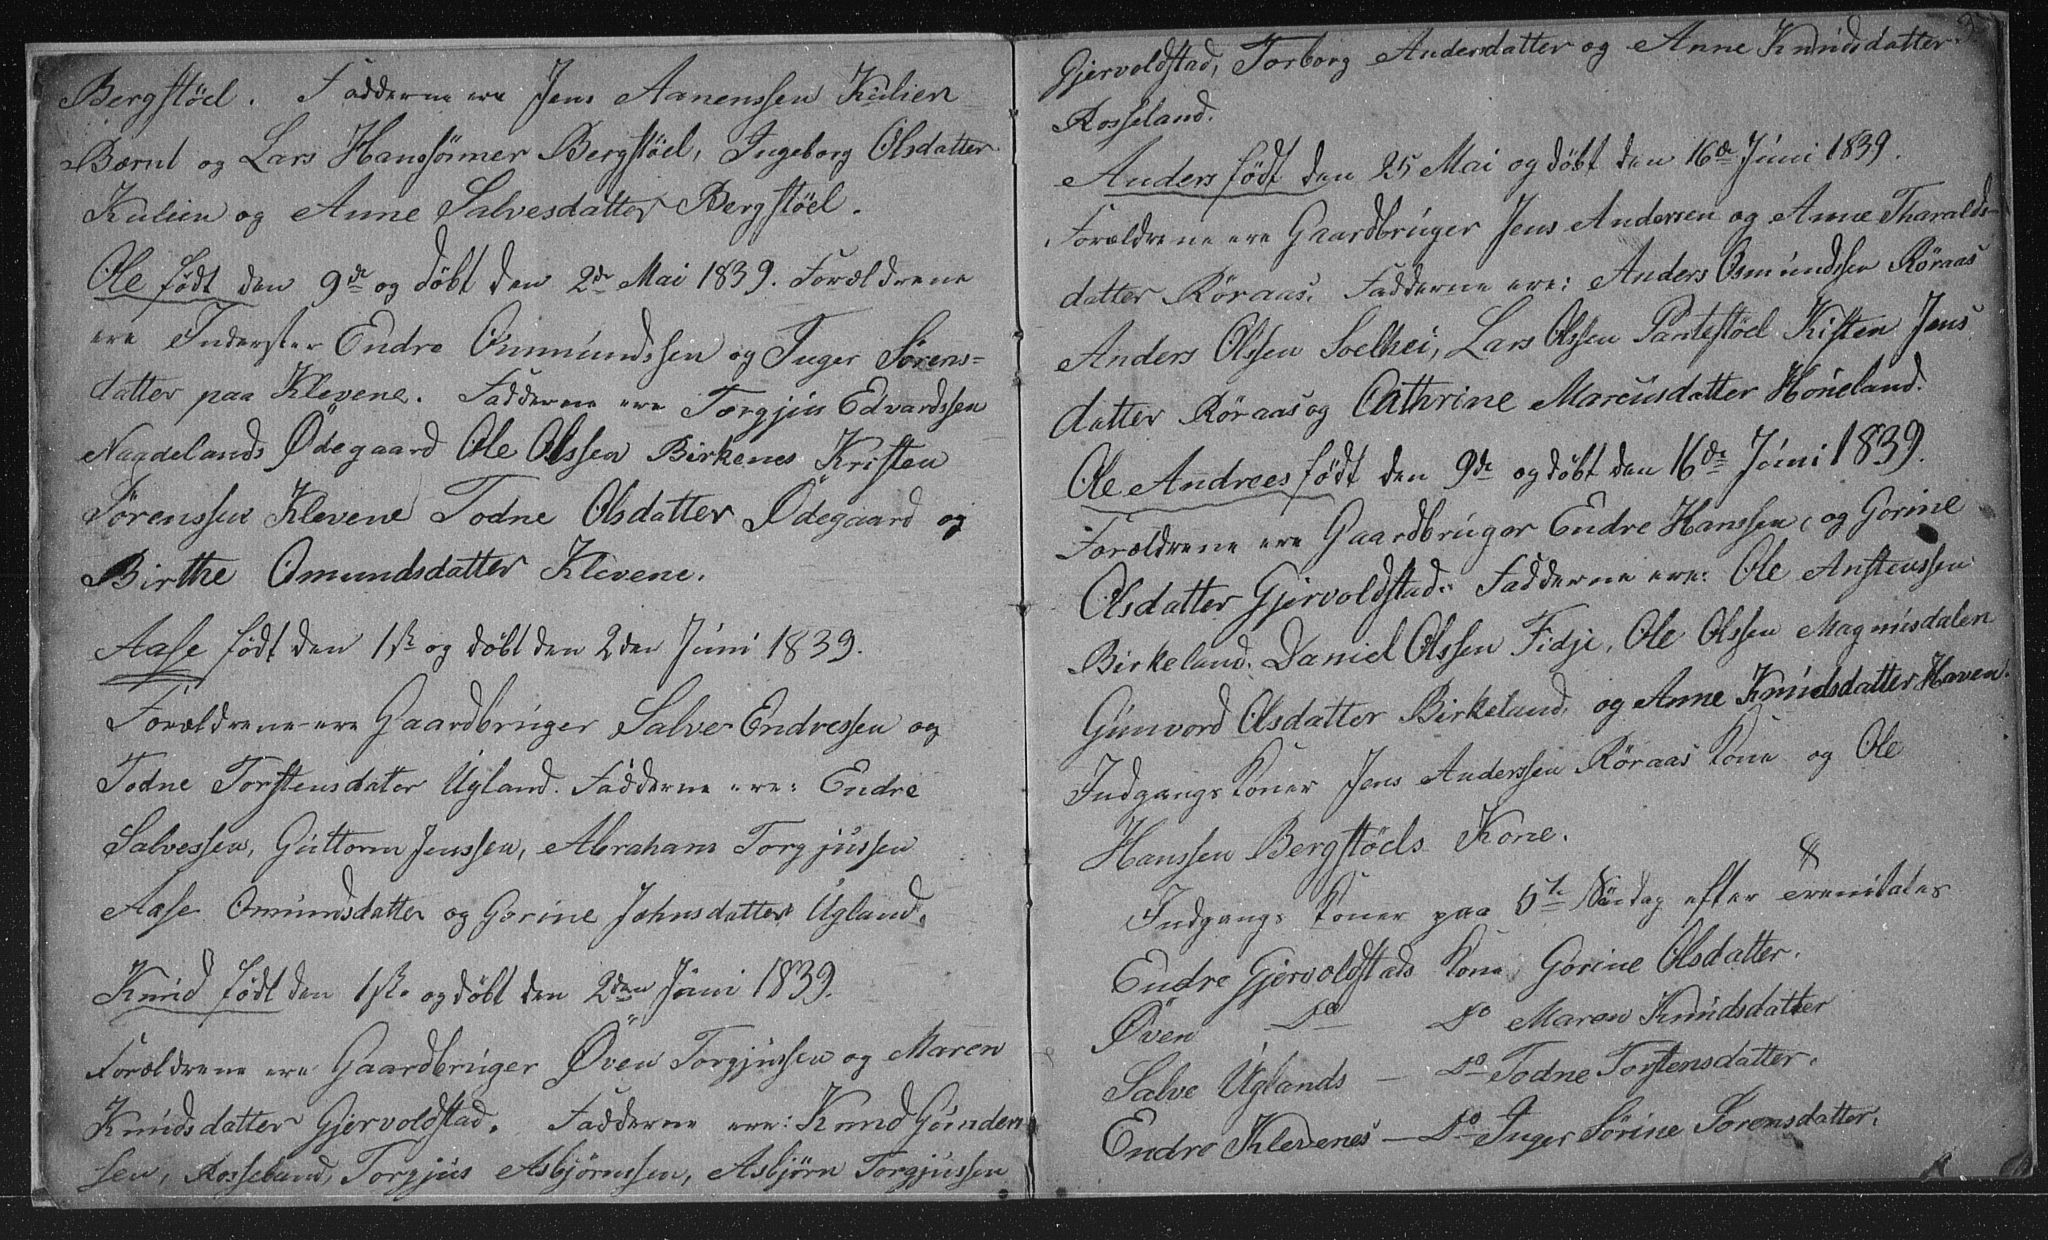 Bergstöel. Fadderne ere Jens Aanenssen Kulien
Bærnt og Lars Hanssönner Bergstöel, Ingeborg Olsdatter
Kulien og Anne Salvesdatter Bergstöel.
Ole født den 9de og døbt den 2de Mai 1839. Forældrene
ere Inderster Endre Ommundssen og Inger Sørens=
datter paa Klevene. Fadderne ere Torgjus Edvardssen
Naadelands Ødegaard Ole Olssen Birkenes Kristen
Sørenssen Klevene Todne Olsdatter Ødegaard og
Birthe Omundsdatter Klevene.
Aase født den 1ste og døbt den 2den Juni 1839.
Forældrene ere Gaardbruger Salve Endressen og
Todne Torstensdater Ugland. Fadderne ere: Endre
Salvessen, Guttorm Jenssen, Abraham Torgjussen
Aase Omundsdatter og Gorine Jahnsdatter Ugland.
Knud født den 1ste og døbt den 2den Juni 1839.
Forældrene ere Gaardbruger Øven Torgjussen og Maren
Knudsdatter Gjervoldstad. Fadderne ere: Knud Gunden
sen, Rosseland, Torgjus Asbjørnssen, Asbjørn Torgjussen
Gjervoldstad, Torborg Andersdatter og Anne Knudsdatter
Rosseland.
Anders født den 25 Mai og døbt den 16de Juni 1839.
Forældrene ere Gaardbruger Jens Andersen og Anne Tharalds-
datter Röraas. Fadderne ere: Anders Osmundssen Röraas
Anders Olssen Soelhei, Lars Olssen Pantestöel Kisten Jens
datter Röraas og Cathrine Marcusdatter Höneland.
Ole Andrees født den 9de og døbt den 16de Juni 1839.
Forældrene ere Gaardbruger Endre Hanssen, og Gorine
Olsdatter Gjervoldstad. Fadderne ere: Ole Anstenssen
Birkeland. Daniel Olssen Fidje, Ole Olssen Magnusdalen
Gunvord Olsdatter Birkeland, og Anne Knudsdatter Haven.
Indgangs Koner Jens Anderssen Röraas Kone og Ole
Hanssen Bergstöels Kone.
Indgangs Koner paa 5te Søndag efter Trenitates
Endre Gjervoldstads Kone, Gorine Olsdatter.
Øven Do Do Maren Knudsdatter
Salve Uglands — Do Todne Torstensdatter.
Endre Klevenes — Do Inger Sörine Sörensdatter.